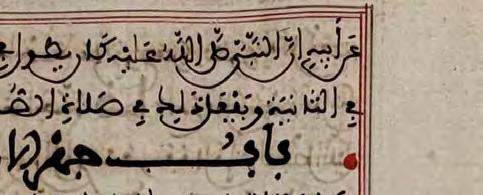 عن أبيه أن النبي صلى الله عليه كان يطول في
في الثانية ويفعل ذلك في صلاة الصـ
باب جهر الا